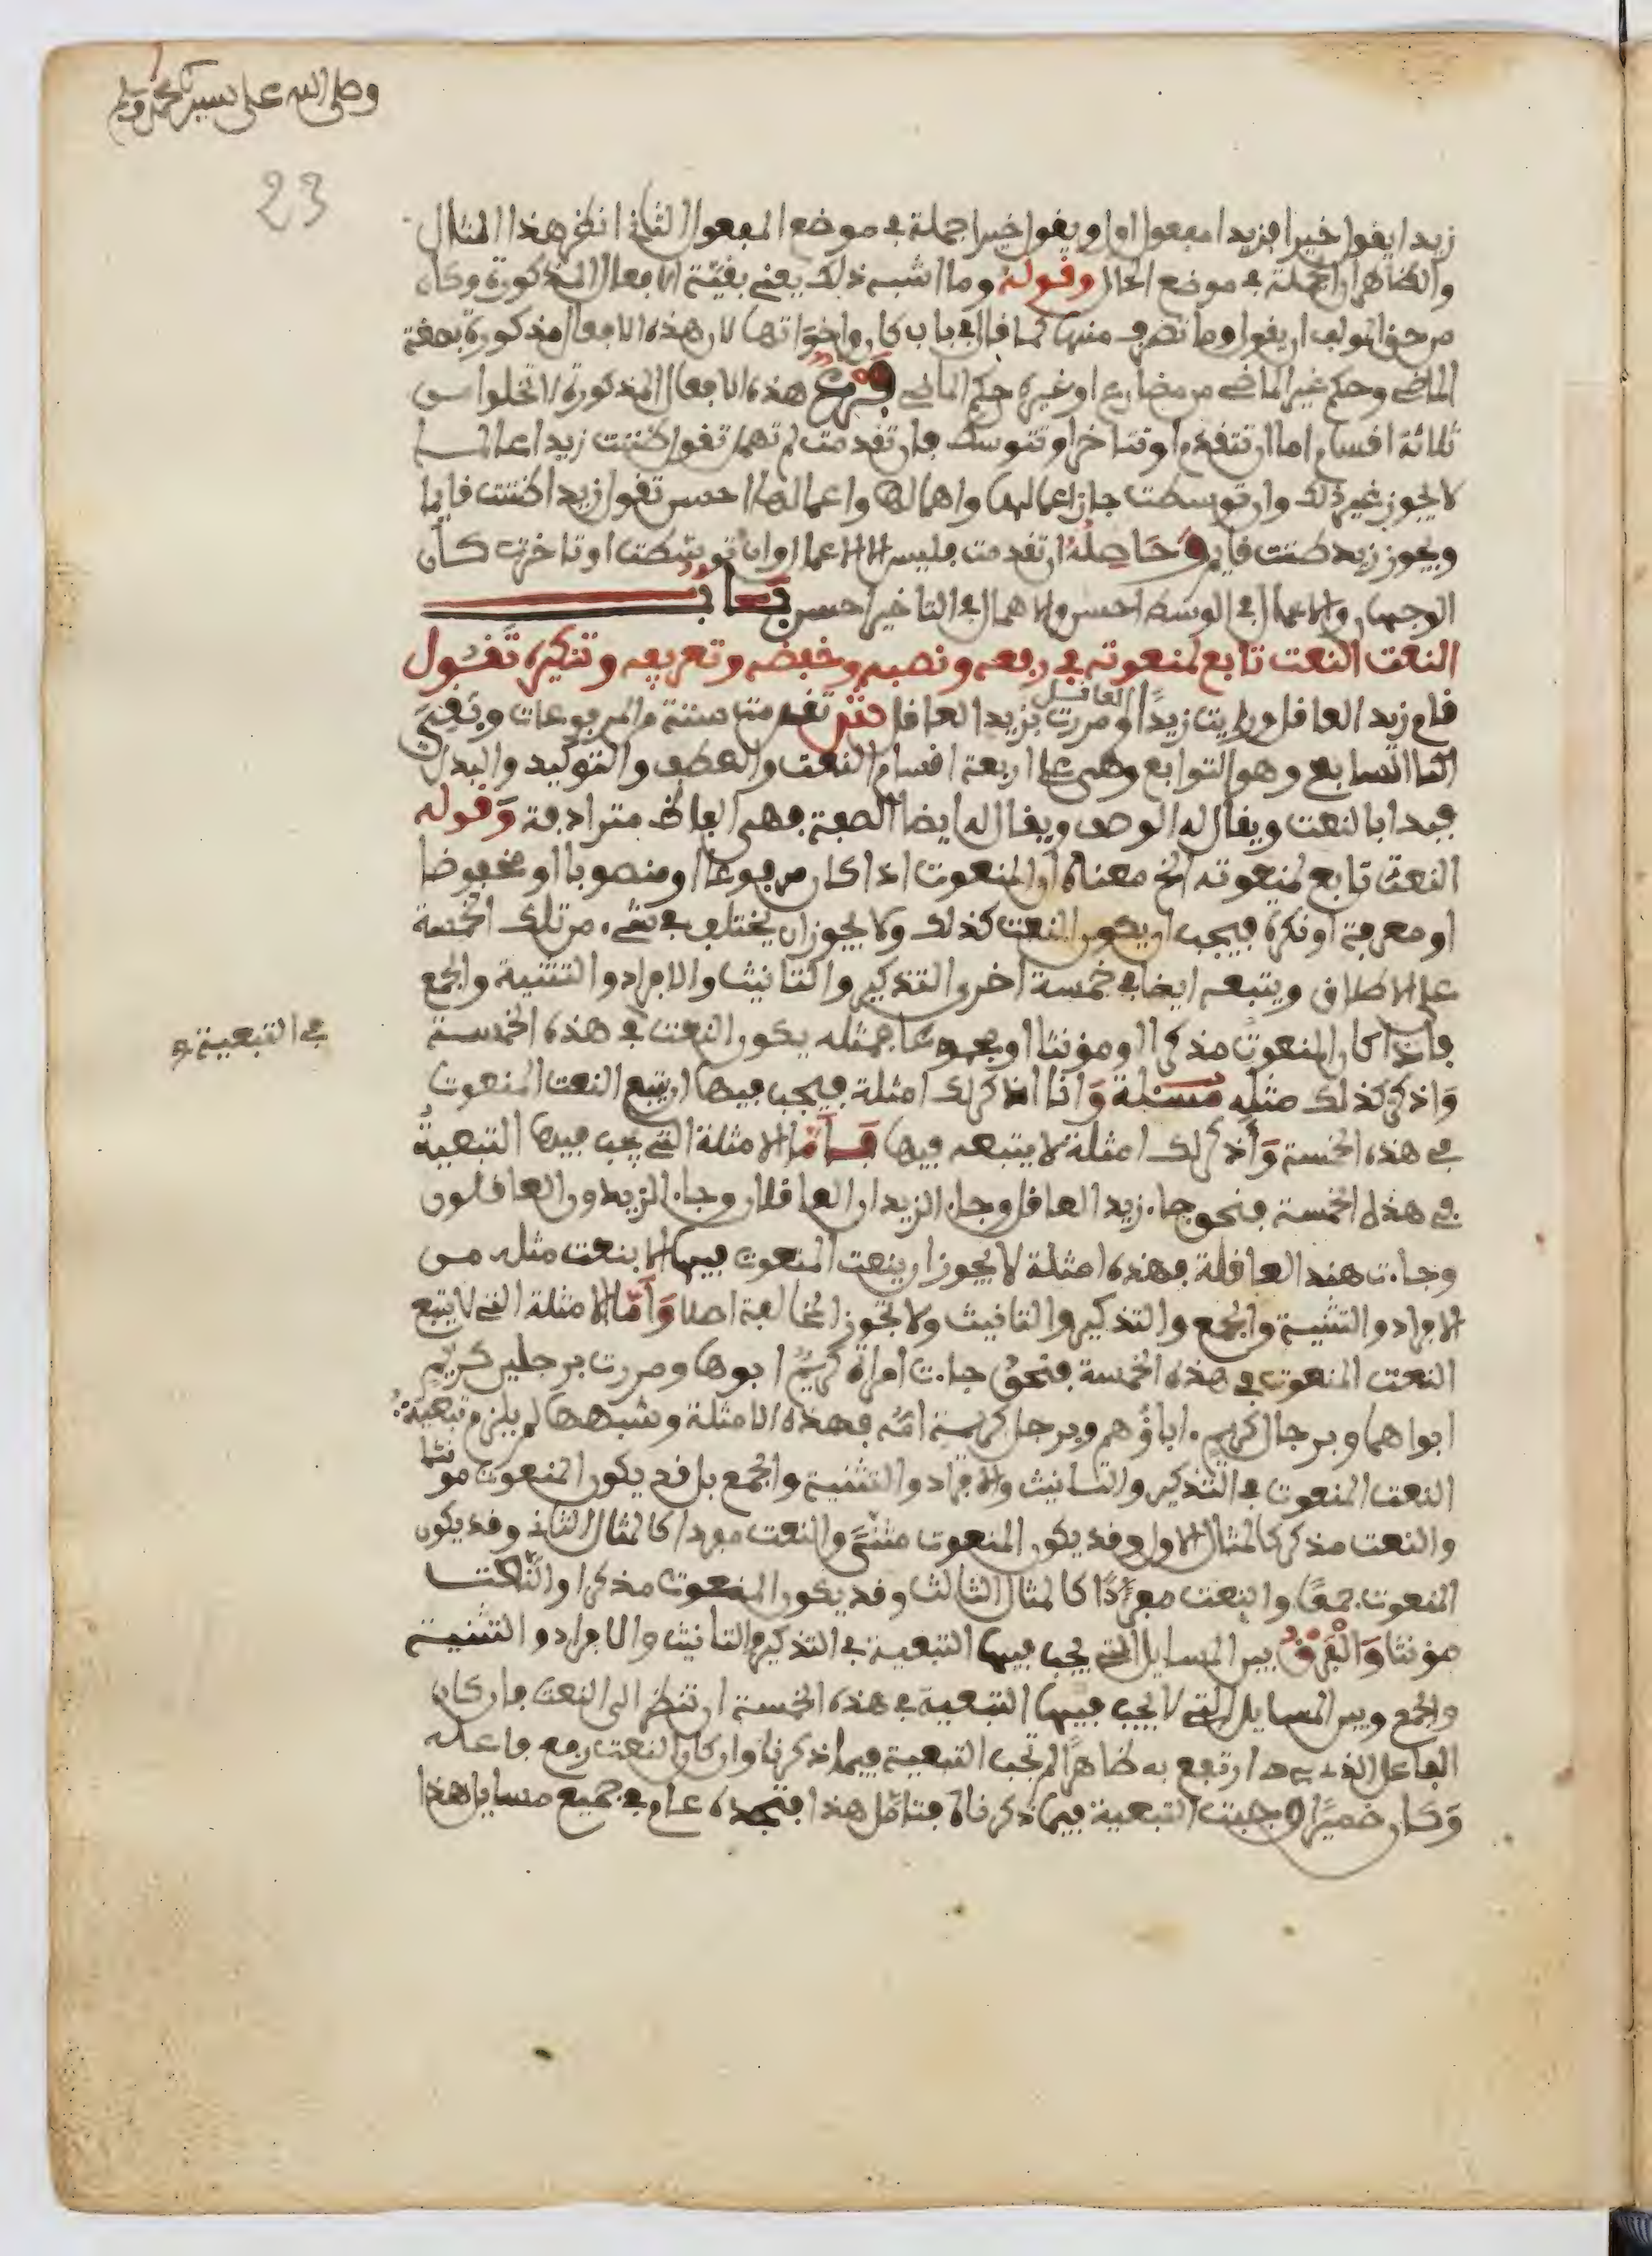 وصلى الله على سيدنا محمد وسلم
23
زيدا يقول خيرا فزيدا مفعول اول ويقول خيرا جملة في موضع المفعول الثاني انظر هذا المثال
والظاهر ان الجملة في موضع الحال وقوله وما اشبه ذلك يعني بقية الافعال المذكورة وكان
من حق المولف ان يقول وما تصرف منها كما قال في باب كان واخواتها لان هذه الافعال مذكورة بصفة
الماضي وحكم غير الماضي من مضارع او غيره حكم الماضي فرع هذه الافعال المذكورة لا تخلوا من
ثلاثة اقسام اما ان تتقدم او تتاخر او تتوسط فان تقدمت لم تهمل تقول ظننت زيدا عالما
لا يجوز غير ذلك وان توسطت جاز اعمالها واهمالها واعمالها احسن تقول زيدا ظننت قايما
ويجوز زيد ظننت قايم وحاصله ان تقدمت فليس الا الاعمال وان توسطت او تاخرت كان
الوجهان والاعمال في الوسط احسن والاهمال في التاخير احسن باب
النعت النعت تابع لمنعوته في رفعه ونصبه وخفضه وتعريفه وتنكيره تقول
قام زيد العاقل ورايت زيدًا العاقل ومررت بزيد العاقل تقدمت ستة من المرفوعات وبقي
السابع وهو التوابع وهي على اربعة اقسام النعت والعطف والتوكيد والبدل
فبدا بالنعت ويقال له الوصف ويقال له ايضا الصفة فهي الفاظ مترادفة وقوله
النعت تابع لمنعوته الخ معناه ان المنعوت اذا كان مرفوعا او منصوبا او مخفوضا
او معرفة او نكرة فيجب ان يكون النعت كذلك ولا يجوز ان يختلف في شيء من تلك الخمسة
على الاطلاق ويتبعه ايضا في خمسة اخرى التذكير والتانيث والافراد والتثنية والجمع
فاذا كان المنعوت مذكرا او مونثا او مجموعا فمثله يكون النعت في هذه الخمسة
في التبعية
واذكر كذلك مثله مسئلة وانا اذكر لك امثلة فيجب فيها ان يتبع النعت المنعوت
في هذه الخمسة واذكر لك امثلة لا يتبعه فيها فاما الامثلة التي يجب فيها التبعية
في هذه الخمسة فنحو جاء زيد العاقل وجاء الزيدان العاقلان وجاء الزيدون العاقلون
وجاءت هند العاقلة فهذه امثلة لا يجوز ان ينعت المنعوت فيها الا بنعت مثله من
الافراد والتثنية والجمع والتذكير والتانيث ولا تجوز المخالفة اصلا وأمّا الامثلة التي لا يتبع
النعت المنعوت في هذه الخمسة فنحو جاءت امراة كريم ابوها ومررت برجلين كريم
ابواهما وبرجال كريم اباؤهم وبرجل كريمة امّه فهذه الامثلة وشبهها لم يلزم تبعية
النعت المنعوت في التذكير والتانيث والافراد والتثنية والجمع بل قد يكون المنعوت مونثا
والنعت مذكر كالمثال الاول وقد يكون المنعوت مثنى والنعت مفردا كالمثال الثاني وقد يكون
المنعوت جمعًا والنعت مفردًا كالمثال الثالث وقد يكون المنعوت مذكرا والنعت
مونثا والفرق بين المسايل التي يجب فيها التبعية في التذكير والتانيث والافراد والتثنية
والجمع وبين المسايل التي لا يجب فيها التبعية في هذه الخمسة ان تنظر الى النعت فان كان
الفاعل الذي ارتفع به ظاهرًا لم تجب التبعية فيما ذكرنا وان كان النعت رفع فاعله
وكان ضميرًا وجبت التبعية فيما ذكرناه فتامّل هذا فتجده عام في جميع مسايل هذا